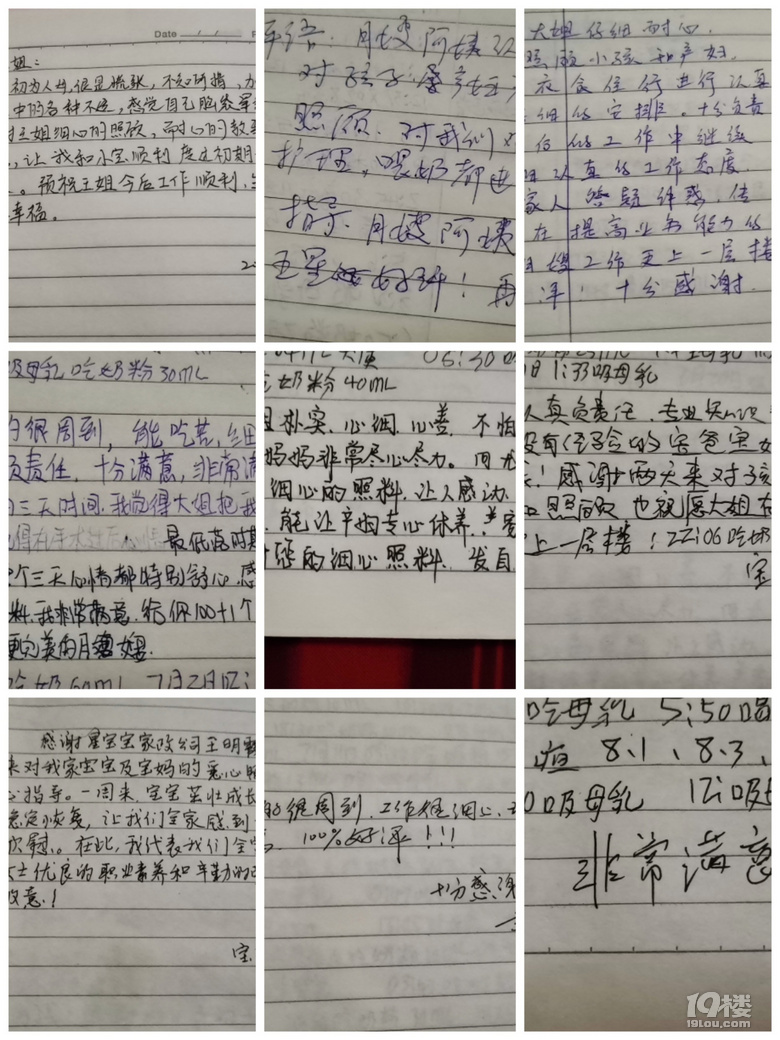 Date
姐：
初为人母，很是慌张，不知所措，
中的各种不适，感觉自己脑袋
王姐细心的照顾，耐心的教
，让我和小宝顺利度过初期
。预祝王姐今后工作顺利，
幸福。
评语：月嫂阿姨
对孩子
照顾，对我们
护理，喂奶都
指导，月嫂阿姨
五星 好评！再
大姐仔细耐心，
照顾小孩和产妇，
衣食住行进行认真
细的安排。十分负责
的工作中继续
认真的工作态度，
家人答疑解惑，
在提高业务能力的
嫂工作更上一层楼
十分感谢
吸母乳吃奶粉30mL
的很周到，能吃苦，细
负责任，十分满意，非常满
三天时间，我觉得大姐把我
最低落时期
个三天心情都特别舒心，感
料，我非常满意，给你100+1个
更完美的月 嫂
吃奶60mL 7月2日12:
06:30
奶粉40mL
朴实，心细，心善，不怕
妈妈非常尽心尽力。
细心的照料，让人感动
，能让产妇专心休养，
的细心照料，发自
日1:33吸母乳
认真负责任，专业知识
没有经验的宝爸宝
！感谢 两天来对孩
照顾 也祝愿大姐
上一层楼！22:06吃奶
宝
感谢星宝宝家政公司王明
来对我家宝宝及宝妈的悉心照
心指导。一周来，宝宝茁壮成长
稳定恢复，让我们全家感到
欣慰。在此，我代表我们全
女士优良的职业素养和辛勤的
敬意！
宝
的很周到，工作很细心，
100%好评！！！
十分感谢
吃母乳 5:50喝
疸 8.1、8.3、
吸母乳 12:吸
非常满意
19楼
19lou.com